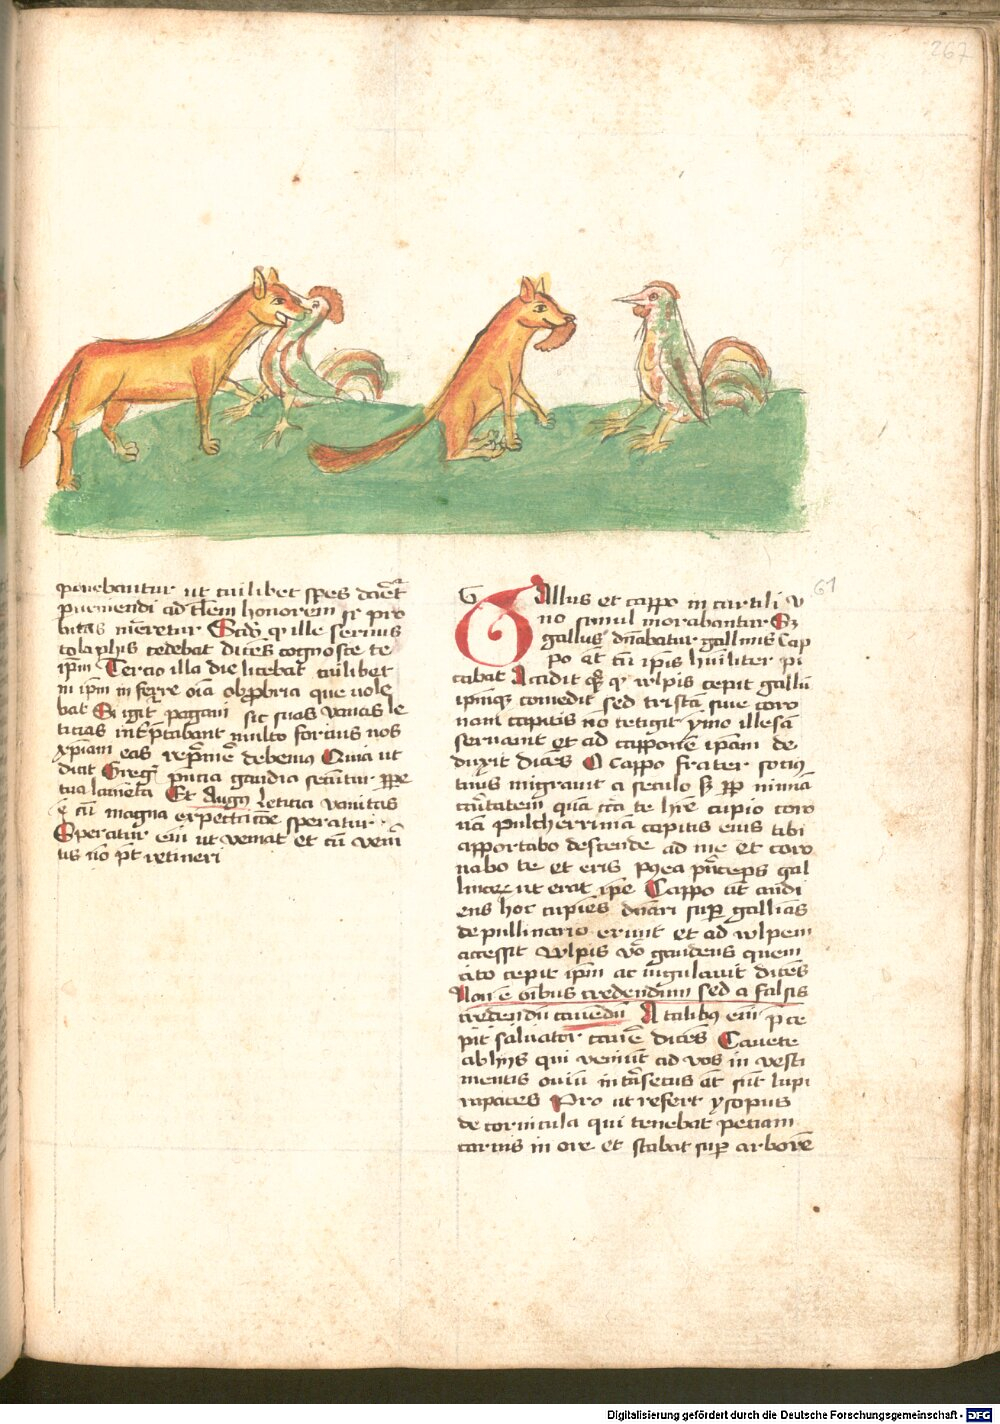 267
ponebantur ut cuilibet spes daret
premendi ad tlem honorem sr pro
bitas meretur Scdo qr ille serius
colaphis cedebat dices cognosce te
ipm Tercio illa die licebat cuilibet
in ipm inferre oia obprobria que vole
bat Si igitr pagani sic suas vanas le
ticias intptabant multo forcius nos
xpiani eas reprime debemus Quia ut
dicit Greg pncia gaudia secuntur ppe
tua lameta Et Augus Leticia vanitas
e cu magna expectacoe speratur
Speratur eni ut veniat et cu veni
us no pt retineri
61
G Allus et cappo in curtili v
no simul morabantur Sz
gallus dnabatur gallinis Cap
po at cu ipis huiliter pi
cabat Accidit qr wlpis cepit gallu
ipmq comedit sed crista sive coro
nam capitis no tetigit ymo illesa
servavit et ad capponem ipam de
duxit dices O cappo frater socius
tuus migravit a seculo sz pp nimia
caritatem qua erga te hre cupio coro
na pulcherrima capitis eius tibi
apportabo descende ad me et coro
nabo te et eris postea princeps gal
linarz ut erat ipe Cappo at audi
ens hoc cupies dnari sup gallias
de pullinario exivit et ad wlpem
accessit wlpis vo gaudens quem
cito cepit ipm ac iugulavit dices
Non e oibus credendum sed a falsis
credendu cavedu A talibus eni pce
pit salvator cave dices Cavete
ab hijs qui veniut ad vos in vesti
mentis oviu intrisecus at sut lupi
rapaces Pro ut refert ysopus
de cornicula qui tenebat peciam
carnis in ore et stabat sup arbore
Digitalisierung gefördert durch die Deutsche Forschungsgemeinschaft - DFG